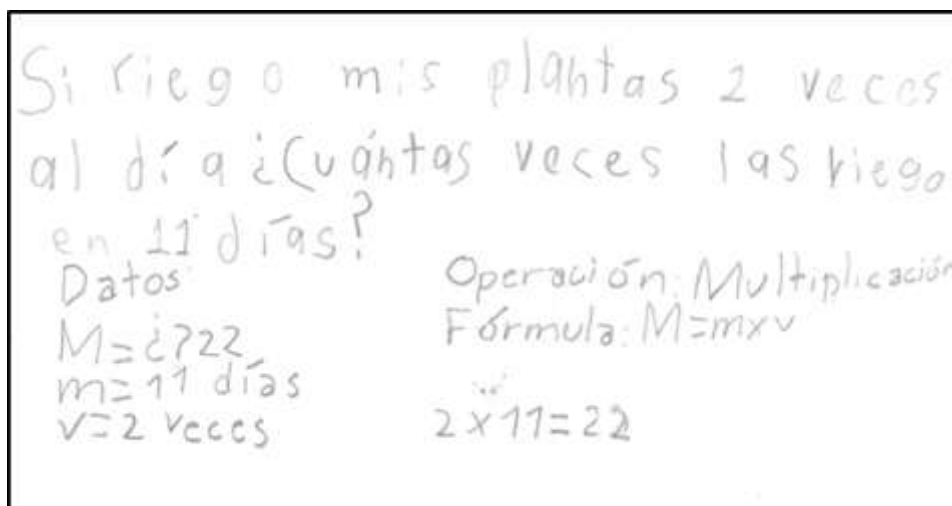 Si riego mis plantas 2 veces
al día ¿Cuántas veces las riego
en 11 días?
Datos
M=¿?22
m=11 días
v=2 veces
Operación: Multiplicación
Fórmula: M=mxv
2x11=22